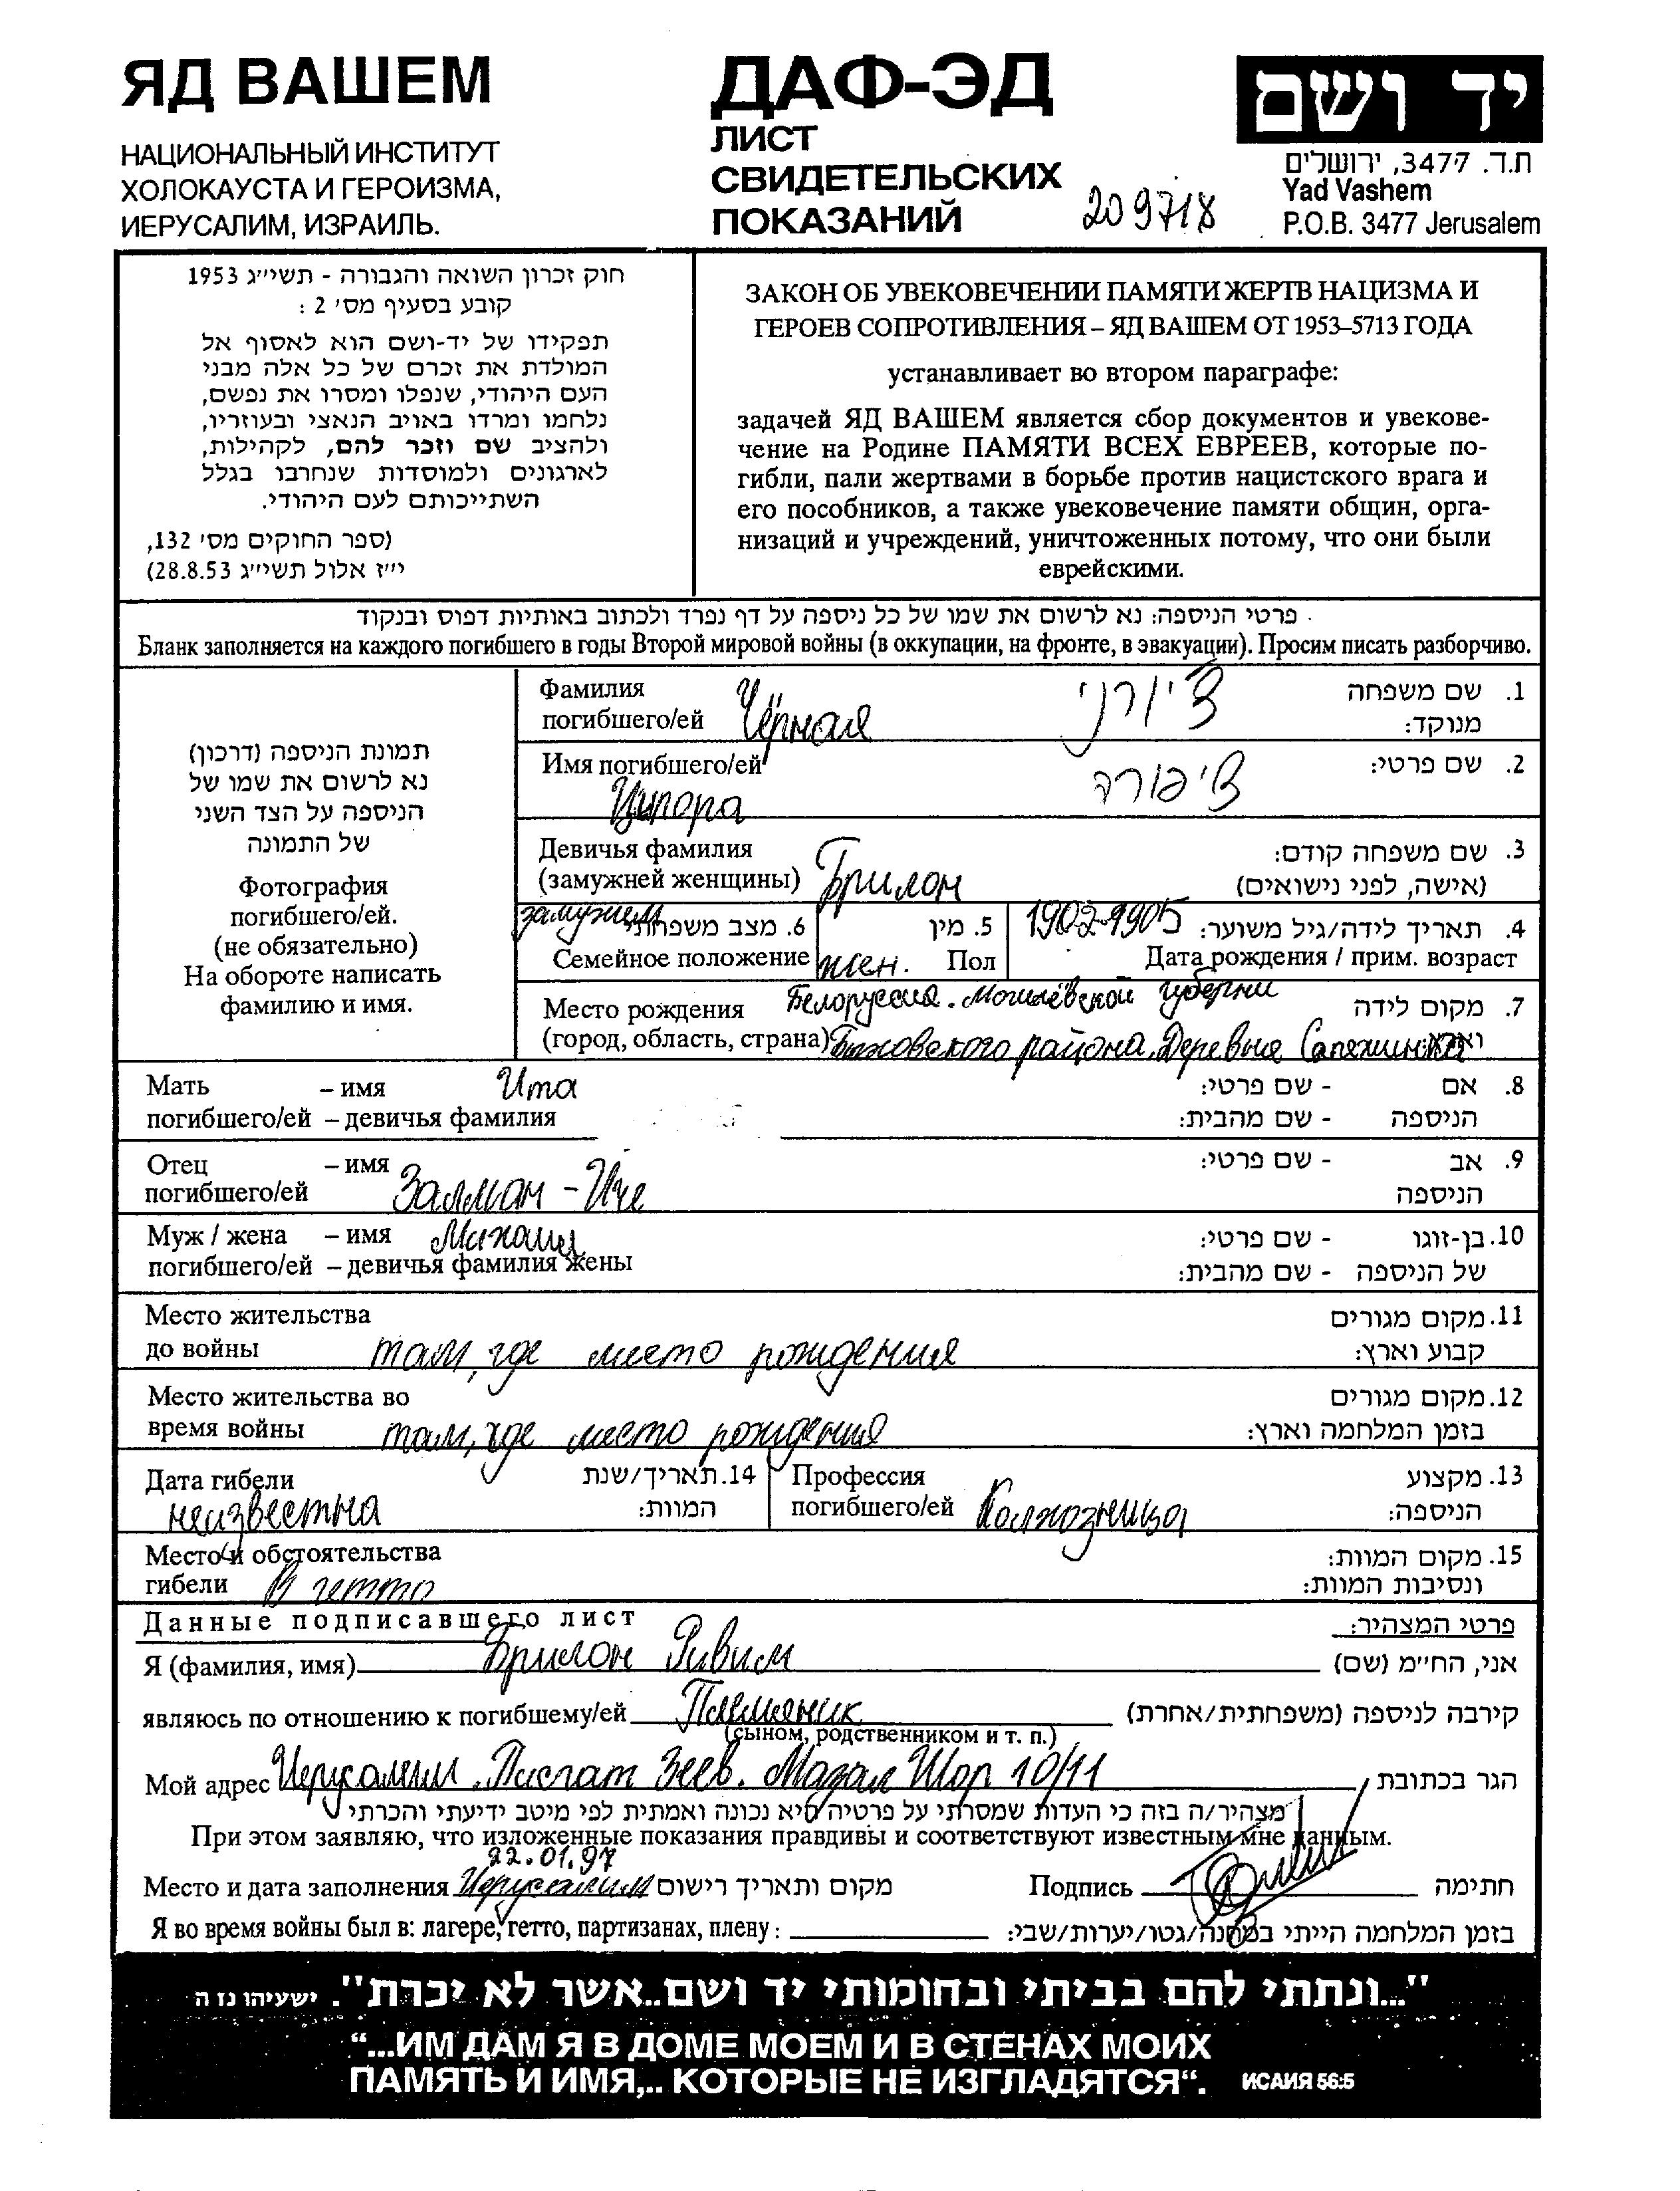 ЯД ВАШЕМ
НАЦИОНАЛЬНЫЙ ИНСТИТУТ
ХОЛОКАУСТА И ГЕРОИЗМА,
ИЕРУСАЛИМ, ИЗРАИЛЬ.
ДАФ-ЭД
ЛИСТ
СВИДЕТЕЛЬСКИХ
ПОКАЗАНИЙ
209718
יד ושם
ת.ד. 3477, ירושלים
Yad Vashem
P.O.B. 3477 Jerusalem
חוק זכרון השואה והגבורה - תשי״ג 1953
קובע בסעיף מס׳ 2 :
תפקידו של יד-ושם הוא לאסוף אל
המולדת את זכרם של כל אלה מבני
העם היהודי, שנפלו ומסרו את נפשם,
נלחמו ומרדו באויב הנאצי ובעוזריו,
ולהציב שם וזכר להם, לקהילות,
לארגונים ולמוסדות שנחרבו בגלל
השתייכותם לעם היהודי.
(ספר החוקים מס׳ 132,
י״ז אלול תשי״ג 28.8.53)
ЗАКОН ОБ УВЕКОВЕЧЕНИИ ПАМЯТИ ЖЕРТВ НАЦИЗМА И
ГЕРОЕВ СОПРОТИВЛЕНИЯ – ЯД ВАШЕМ ОТ 1953–5713 ГОДА
устанавливает во втором параграфе:
задачей ЯД ВАШЕМ является сбор документов и увекове-
чение на Родине ПАМЯТИ ВСЕХ ЕВРЕЕВ, которые по-
гибли, пали жертвами в борьбе против нацистского врага и
его пособников, а также увековечение памяти общин, орга-
низаций и учреждений, уничтоженных потому, что они были
еврейскими.
פרטי הניספה: נא לרשום את שמו של כל ניספה על דף נפרד ולכתוב באותיות דפוס ובנקוד
Бланк заполняется на каждого погибшего в годы Второй мировой войны (в оккупации, на фронте, в эвакуации). Просим писать разборчиво.
תמונת הניספה (דרכון)
נא לרשום את שמו של
הניספה על הצד השני
של התמונה
Фотография
погибшего/ей.
(не обязательно)
На обороте написать
фамилию и имя.
Фамилия 1. שם משפחה
погибшего/ей Чёрная צ׳ורני מנוקד:
Имя погибшего/ей 2. שם פרטי:
Ципора ציפורה
Девичья фамилия 3. שם משפחה קודם:
(замужней женщины) Брилон (אישה, לפני נישואים)
замужем 6. מצב משפחתי 5. מין 1902-1905 4. תאריך לידה/גיל משוער:
Семейное положение жен. Пол Дата рождения / прим. возраст
Место рождения Белоруссия. Могилёвской губерни 7. מקום לידה
(город, область, страна) Быховского района, Деревня וארץ:
Мать – имя Ита - שם פרטי: 8. אם
погибшего/ей – девичья фамилия - שם מהבית: הניספה
Отец – имя - שם פרטי: 9. אב
погибшего/ей Залман - Иче הניספה
Муж / жена – имя Михаил - שם פרטי: 10. בן-זוגו
погибшего/ей – девичья фамилия жены - שם מהבית: של הניספה
Место жительства 11. מקום מגורים
до войны там, где место рождения קבוע וארץ:
Место жительства во 12. מקום מגורים
время войны там, где место рождения בזמן המלחמה וארץ:
Дата гибели 14. תאריך/שנת Профессия 13. מקצוע
неизвестна המוות: погибшего/ей Колхозница הניספה:
Место и обстоятельства 15. מקום המוות:
гибели В гетто ונסיבות המוות:
Данные подписавшего лист פרטי המצהיר:
Я (фамилия, имя) Брилон Рувим אני, החי״מ (שם)
являюсь по отношению к погибшему/ей Племяник קירבה לניספה (משפחתית/אחרת)
(сыном, родственником и т. п.)
Мой адрес Иерусалим. Писгат Зеев. Мазал Шор 10/11 הגר בכתובת
מצהיר/ה בזה כי העדות שמסרתי על פרטיה היא נכונה ואמתית לפי מיטב ידיעתי והכרתי
При этом заявляю, что изложенные показания правдивы и соответствуют известным мне данным.
22.01.97
Место и дата заполнения Иерусалим מקום ותאריך רישום Подпись חתימה
Я во время войны был в: лагере, гетто, партизанах, плену : בזמן המלחמה הייתי במחנה/גטו/יערות/שבי:
"...ונתתי להם בביתי ובחומותי יד ושם..אשר לא יכרת". ישעיהו נז ה
“...ИМ ДАМ Я В ДОМЕ МОЕМ И В СТЕНАХ МОИХ
ПАМЯТЬ И ИМЯ,.. КОТОРЫЕ НЕ ИЗГЛАДЯТСЯ“. ИСАИЯ 56:5